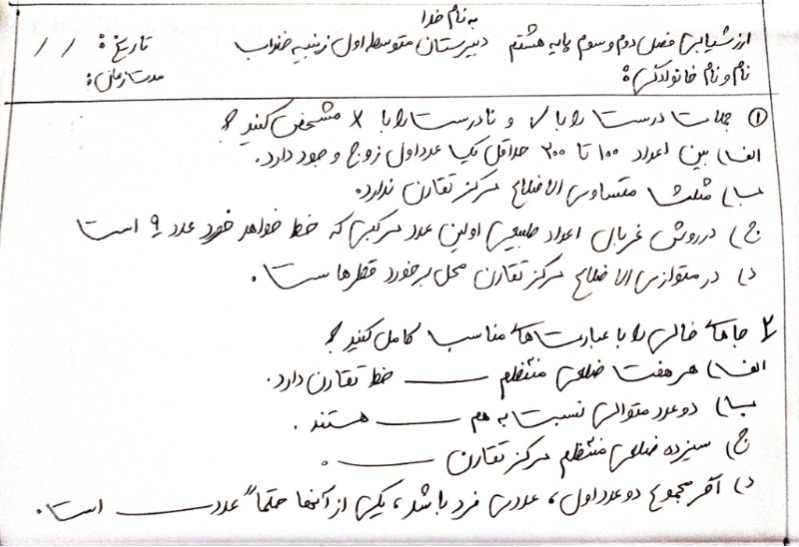 به نام خدا
ارزشیابی فصل دوم و سوم پایه هشتم دبیرستان متوسطه اول زینبیه خنداب تاریخ: / /
نام و نام خانوادگی: مدت زمان:
① جملات درست را با ✓ و نادرست را با × مشخص کنید:
الف) بین اعداد ۱۰۰ تا ۲۰۰ حداقل یک عدد اول زوج وجود دارد.
ب) مثلث متساوی الاضلاع مرکز تقارن ندارد.
ج) در روش غربال اعداد طبیعی اولین عدد مرکبی که خط خواهد خورد عدد ۹ است
د) در متوازی الاضلاع مرکز تقارن محل برخورد قطرهاست.
۲ جاهای خالی را با عبارت های مناسب کامل کنید:
الف) هر هفت ضلعی منتظم ـــــ خط تقارن دارد.
ب) دو عدد متوالی نسبت به هم ـــــ هستند.
ج) سیزده ضلعی منتظم مرکز تقارن ـــــ.
د) اگر مجموع دو عدد اول، عددی فرد باشد، یکی از آنها حتماً عدد ـــــ است.